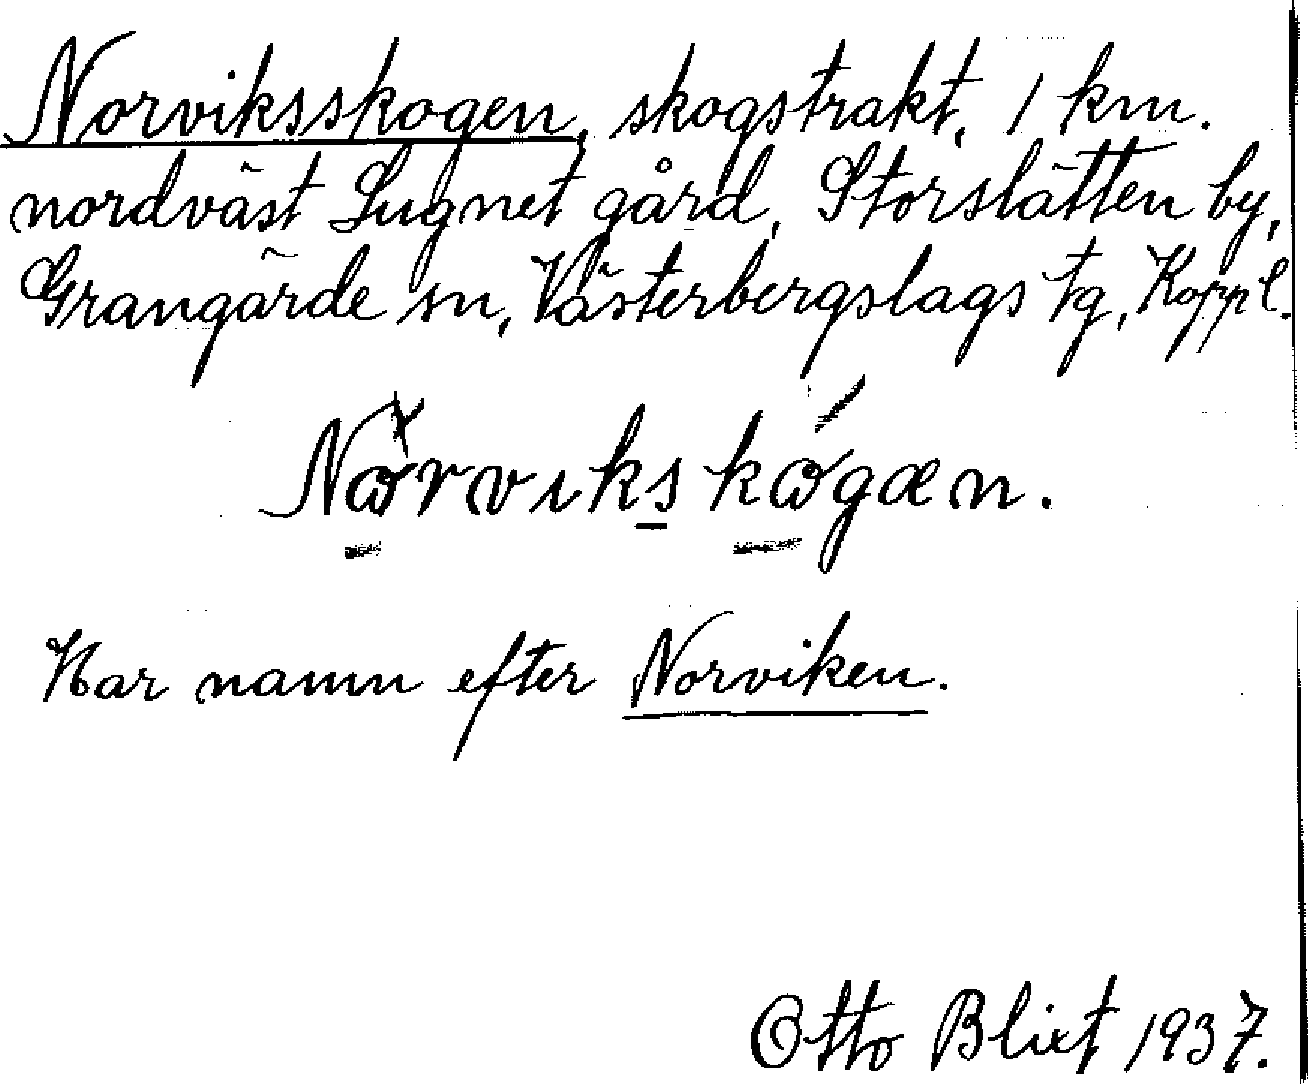 Norviksskogen, skogstrakt, 1 km.
nordväst Lugnet gård, Storslätten by,
Grangärde sn, Västerbergslags tg, Kopp l.
Nωrvikskωgæn.
Har namn efter Norviken.
Otto Blixt 1937.